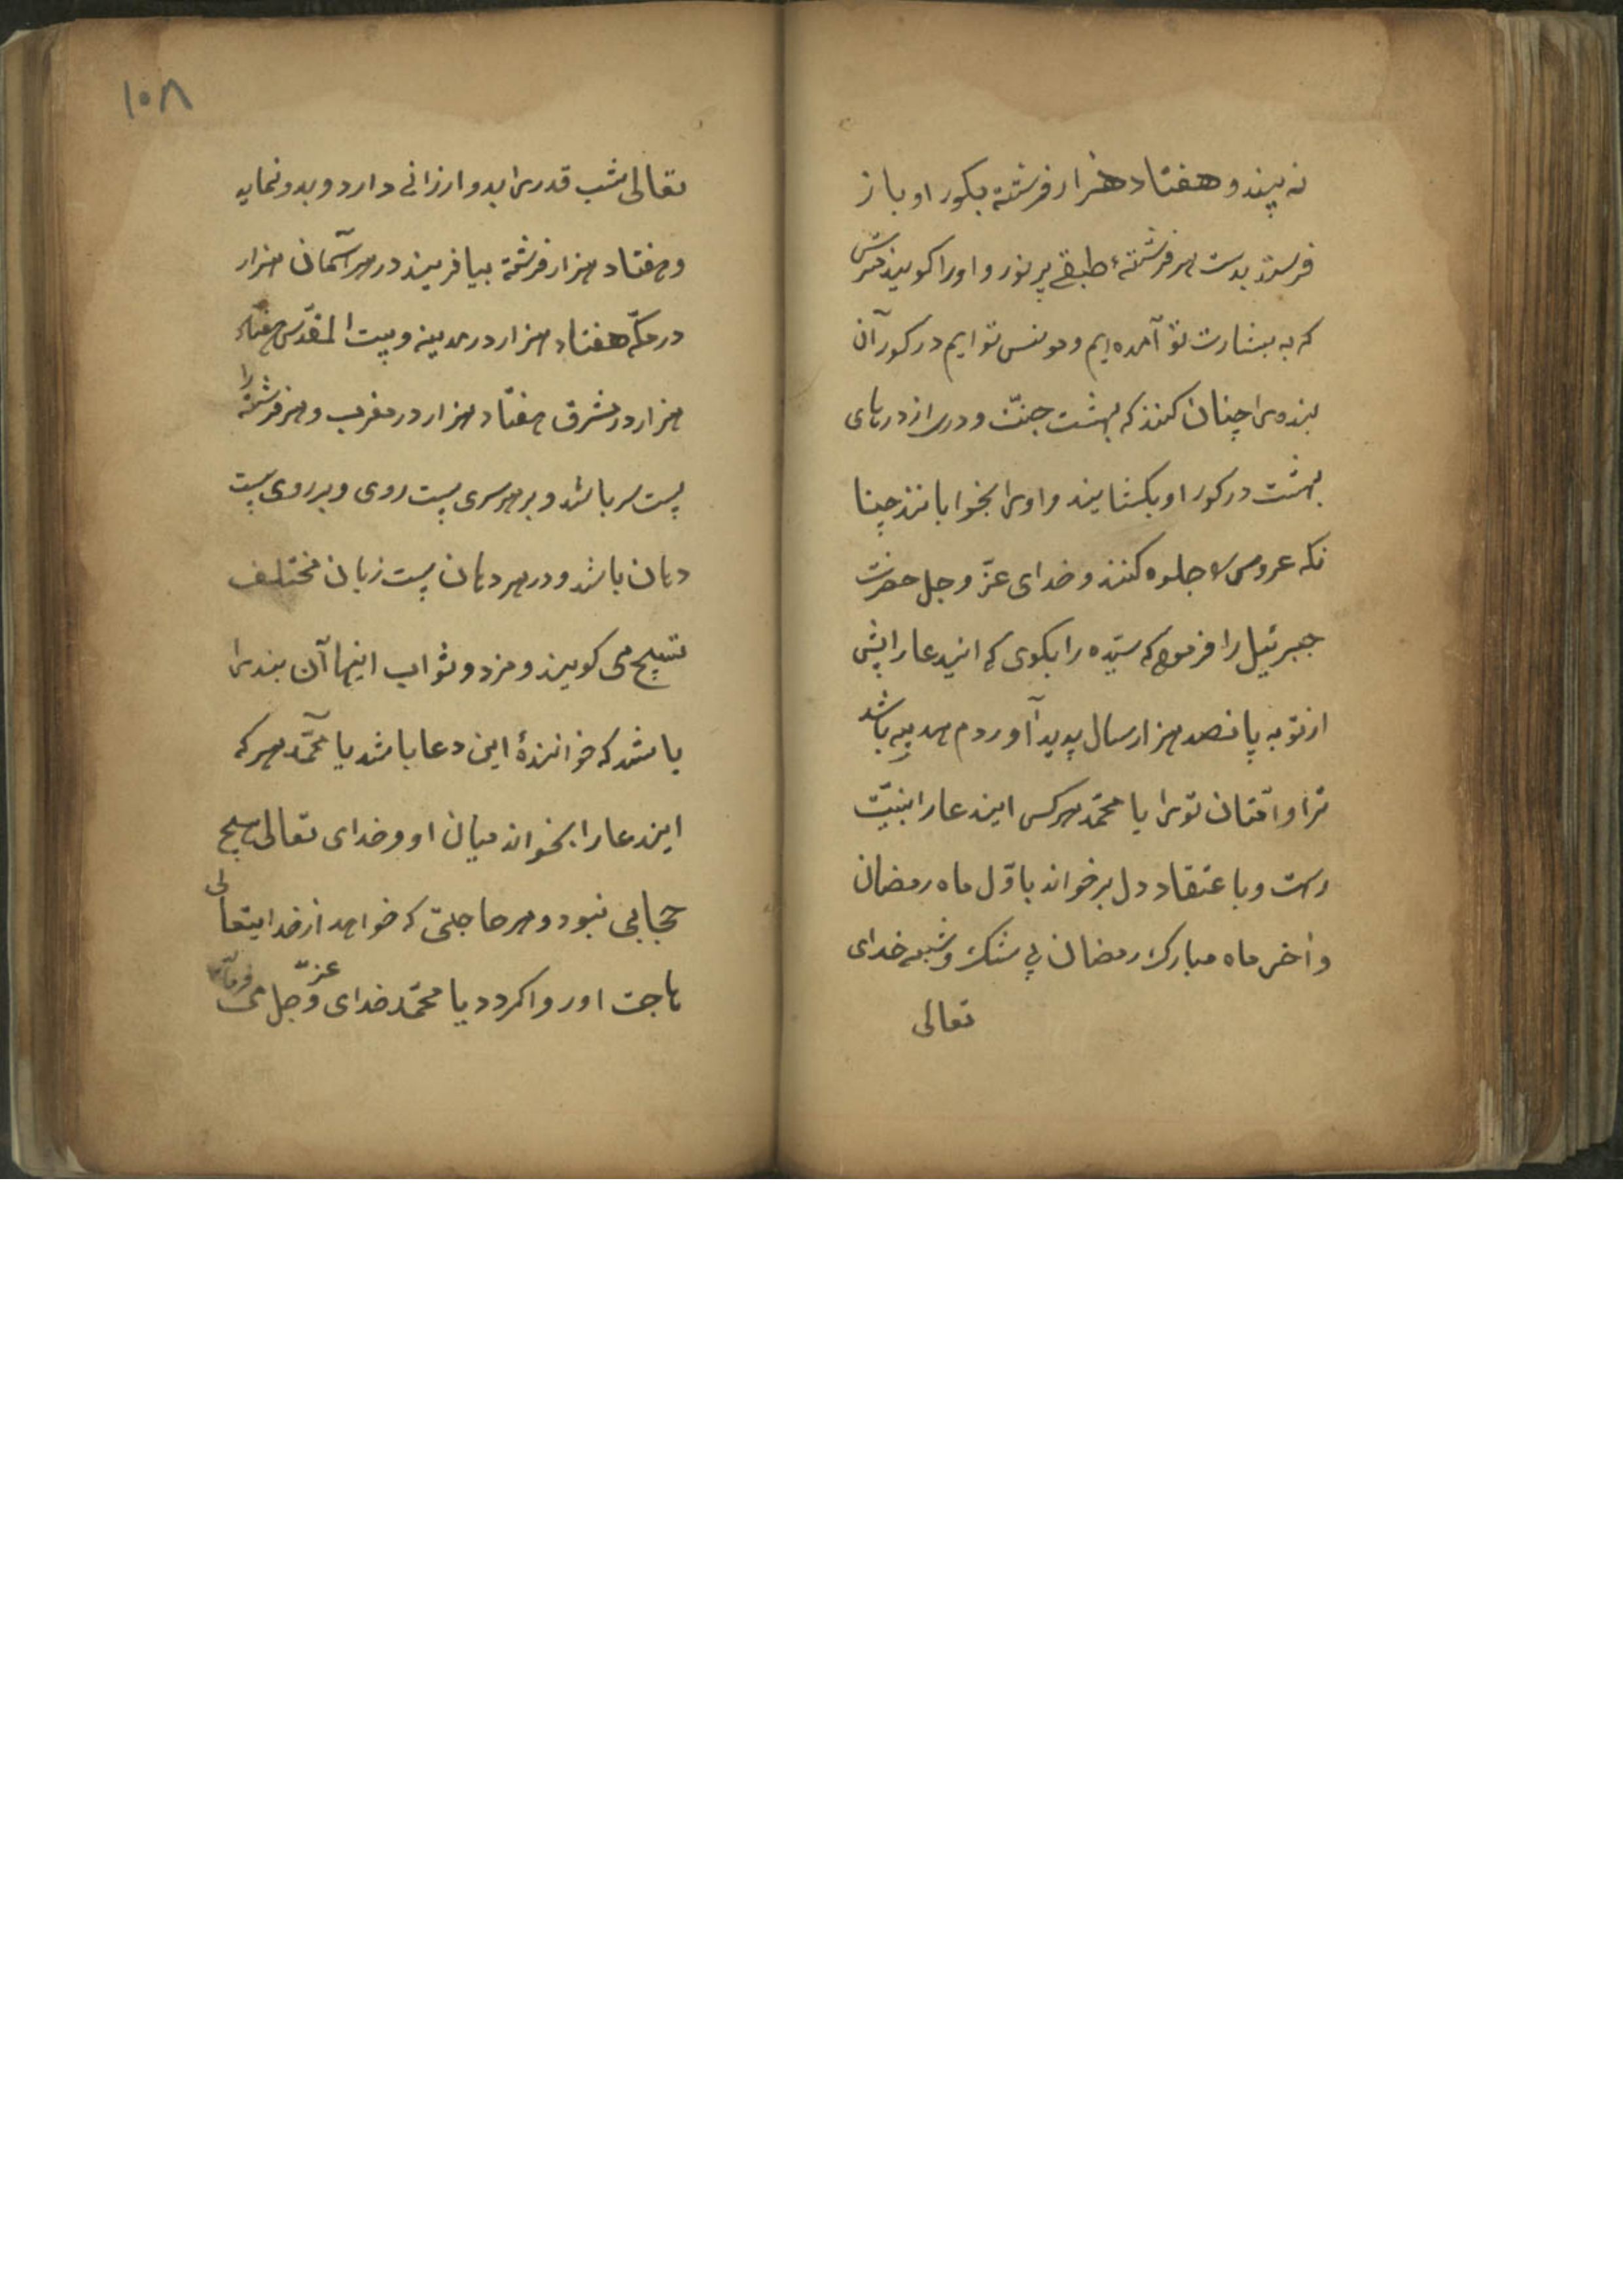 نه بیند و هفتاد هزار فرشته بکور او باز
فرستد بدست هر فرشتهٔ طبقے پر نور و اورا کویند مترس
که به بشارت تو آمده‌ایم و مونس تو ایم در کور آن
بنده را چنان کنند که بهشت جنّت و دری از درهای
بهشت در کور او بکشایند و اورا بخوابانند چنا
نکه عروس را جلوه کنند و خدای عزّ و جل حضرت
جبرئیل را فرمود که سیّد را بکوی که اندعا را پیش
از تو به پانصد هزار سال پدید آوردم هدیه باشد
ترا و امّتان ترا یا محمّد هر کس ایندعا را بنیّت
رست و باعتقاد دل برخواند باوّل ماه رمضان
و آخر ماه مبارک رمضان بی شک و شبهه خدای
تعالی
۱۰۸
تعالی شب قدر را بدو ارزانی دارد و بدو نماید
و هفتاد هزار فرشته بیافریند در هر آسمان هزار
در مکّه هفتاد هزار در مدینه و بیت المقدّس هفتاد
هزار در مشرق هفتاد هزار در مغرب و هر فرشته را
بیست سر باشد و بر هر سری بیست روی و بر روی بیست
دهان باشد و در هر دهان بیست زبان مختلف
تسبیح می کویند و مزد و ثواب اینها آن بنده را
باشد که خوانندهٔ این دعا باشد یا محمّد هر که
ایندعا را بخواند میان او و خدای تعالی هیچ
حجابی نبود و هر حاجتی که خواهد از خدایتعالی
حاجت او روا کردد یا محمّد خدای عزّ و جل می فرماید